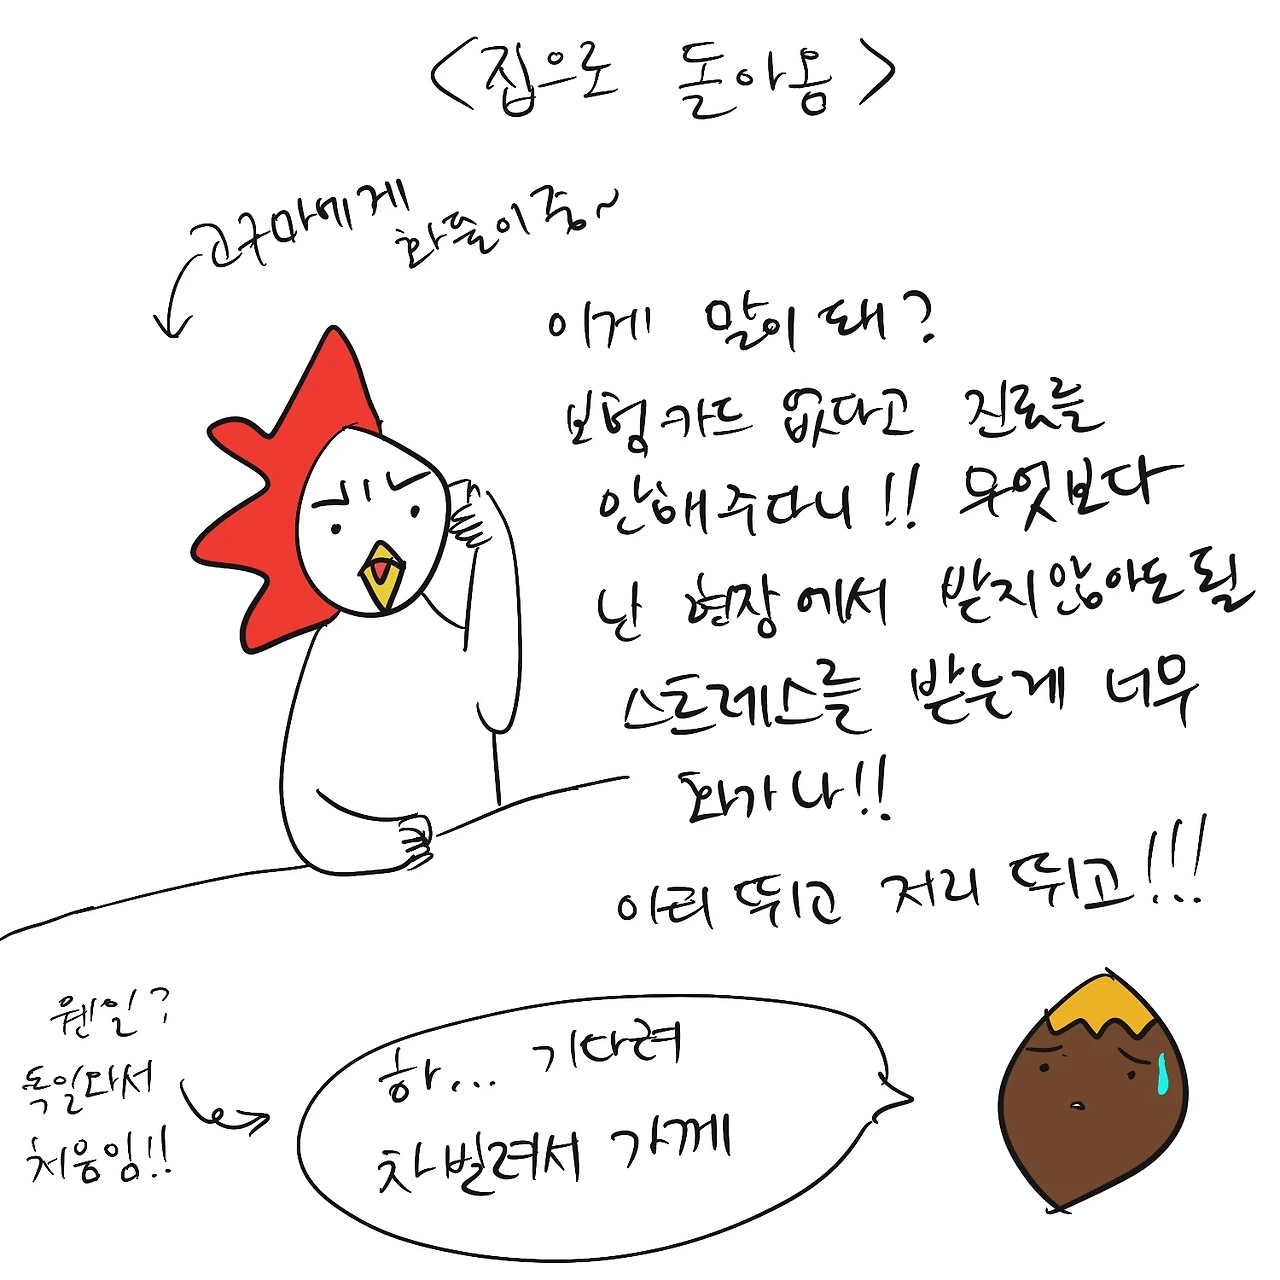 <집으로 돌아옴>
고구마에게
화풀이 중~
이게 말이 돼?
보험카드 없다고 진료를
안해주다니!! 무엇보다
난 현장에서 받지않아도 될
스트레스를 받는게 너무
화가 나!!
이리 뛰고 저리 뛰고!!!
웬일?
독일와서
처음임!!
하... 기다려
차 빌려서 가께